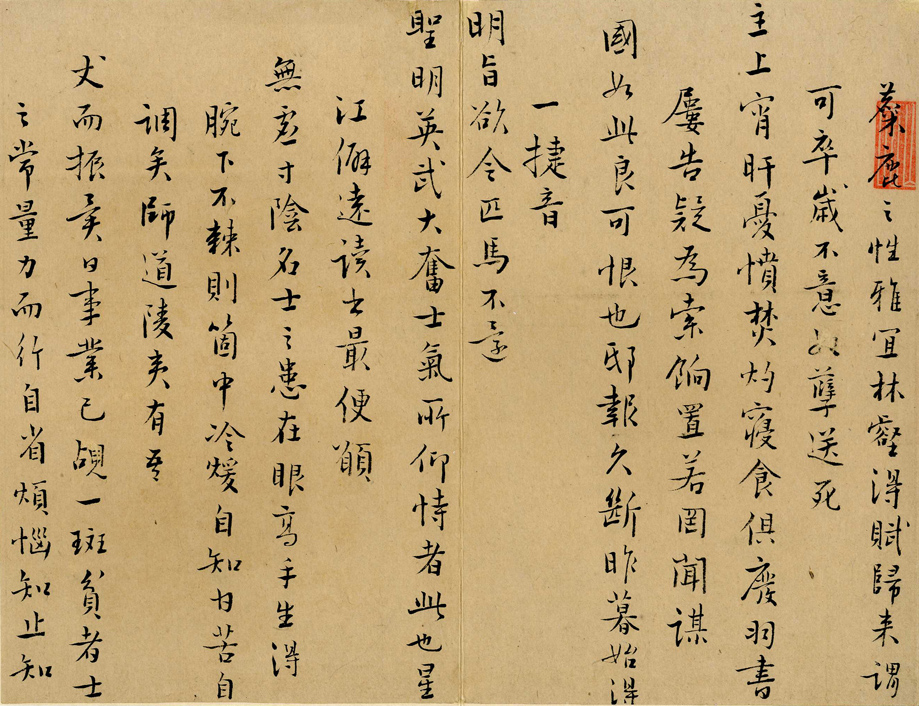 麋鹿之性雅宜林壑得賦歸来謂
可卒歲不意奴孽送死
主上宵旰憂憤焚灼寢食俱廢羽書
屢告疑為索餉置若罔聞謀
國如此良可恨也邸報久斷昨暮始得
一捷音
明旨欲令匹馬不還
聖明英武大奮士氣所仰恃者此也星
江僻遠讀书最便願
無虛寸陰名士之患在眼高手生得
腕下不棘則箇中冷煖自知甘苦自
調矣師道陵夷有吾
丈而振異日事業已覘一斑貧者士
之常量力而行自省煩惱知止知